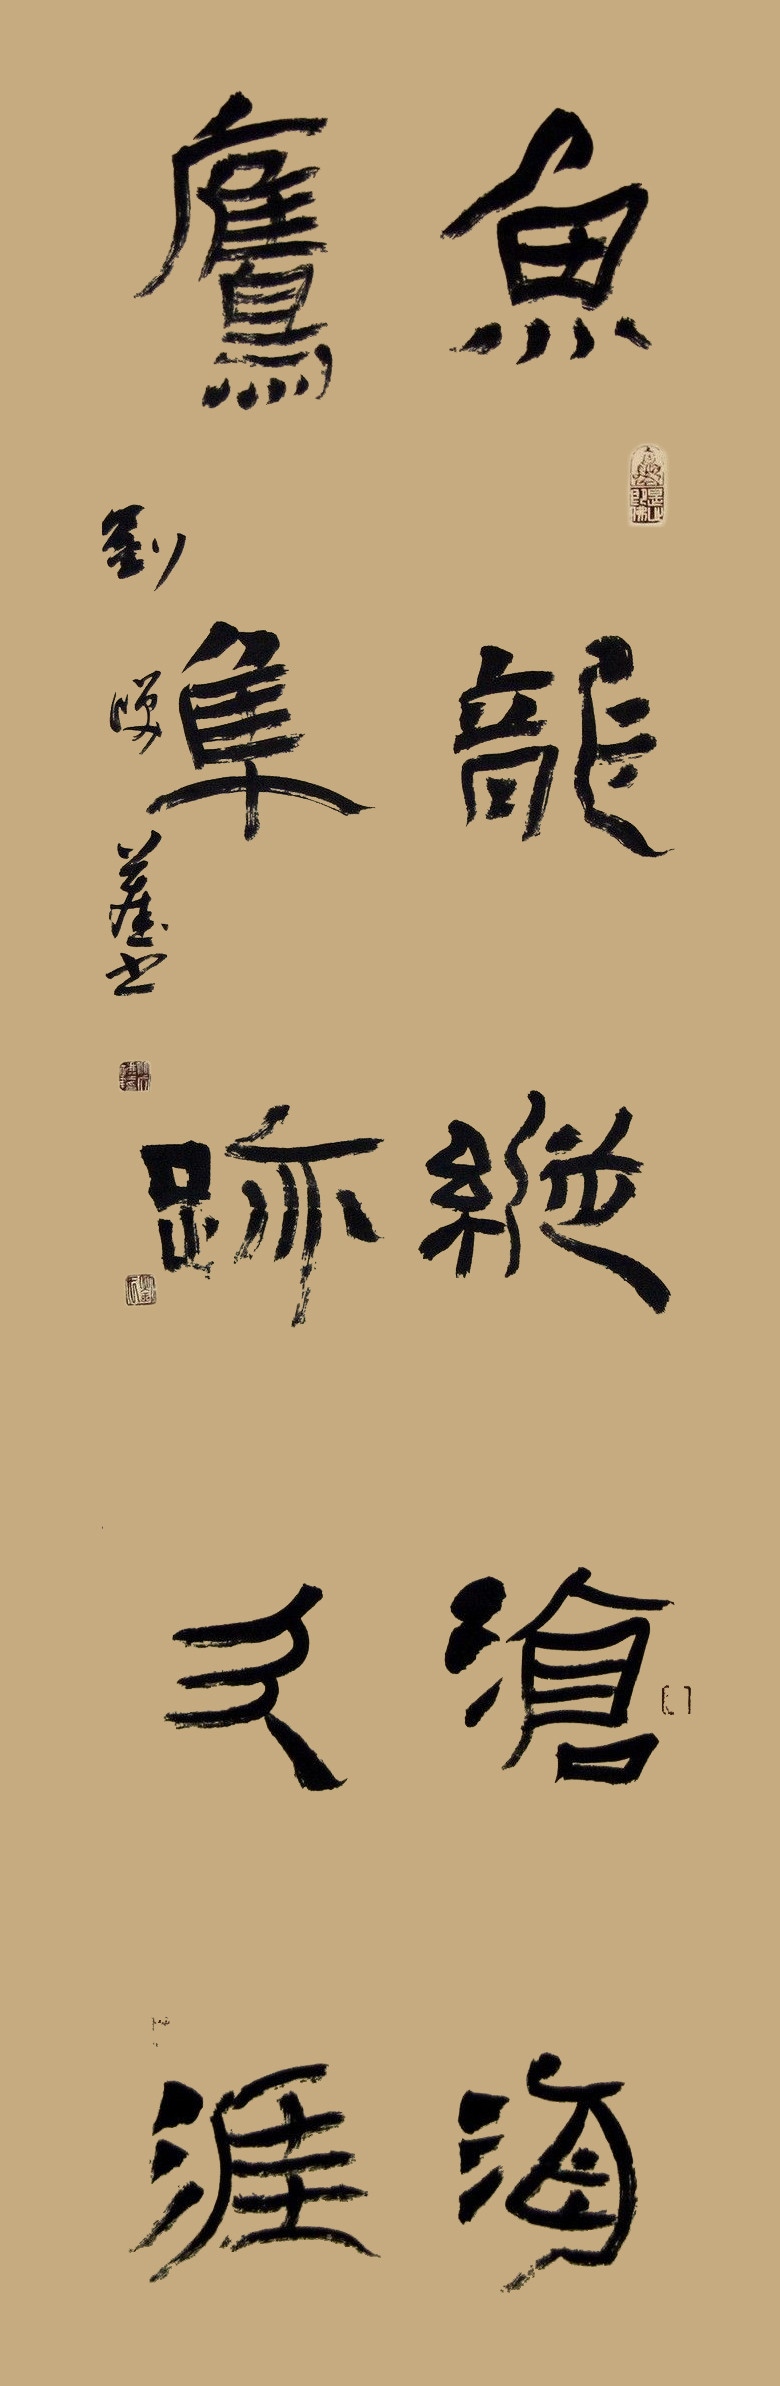 魚龍縱滄海
鷹隼跡天涯
劉
書